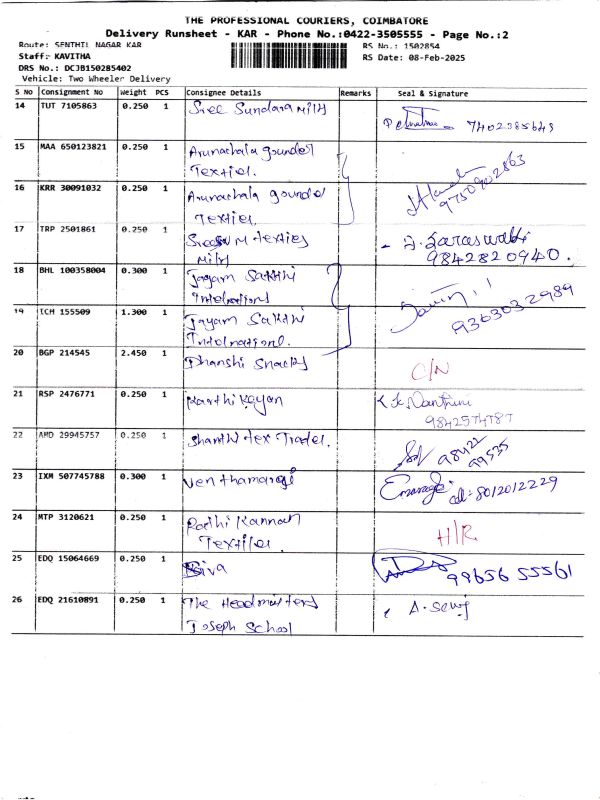 THE PROFESSIONAL COURIERS, COIMBATORE
Delivery Runsheet - KAR - Phone No.:0422-3505555 - Page No.:2
Route: SENTHIL NAGAR KAR
RS No.: 1502854
Staff: KAVITHA
RS Date: 08-Feb-2025
DRS No.: DCJB150285402
Vehicle: Two Wheeler Delivery
S No Consignment No Weight PCS Consignee Details Remarks Seal & Signature
14 TUT 7105863 0.250 1 Sree Sundara Mills
7402385643
15 MAA 650123821 0.250 1 Arunachala gounder
Textiles.
9750902863
16 KRR 30091032 0.250 1 Arunachala gounder
Textiles.
17 TRP 2501861 0.250 1 M textiles
Mills
Saraswathi
9842820940.
18 BHL 100358004 0.300 1 Jayam Sakthi
19 ICH 155509 1.300 1 Jayam Sakthi
9363032989
20 BGP 214545 2.450 1 Dhanshi Snacks C/N
21 RSP 2476771 0.250 1 Karthikeyan
22 AMD 29945757 0.250 1 Shanthi tex Trader.
98422
99535
23 IXM 507745788 0.300 1 Venthamarai
cell: 8012012229
24 MTP 3120621 0.250 1 Radhi Kannan
Textiles. H/R
25 EDQ 15064669 0.250 1 Siva 99656 55561
26 EDQ 21610891 0.250 1 The Headmasters
Joseph School